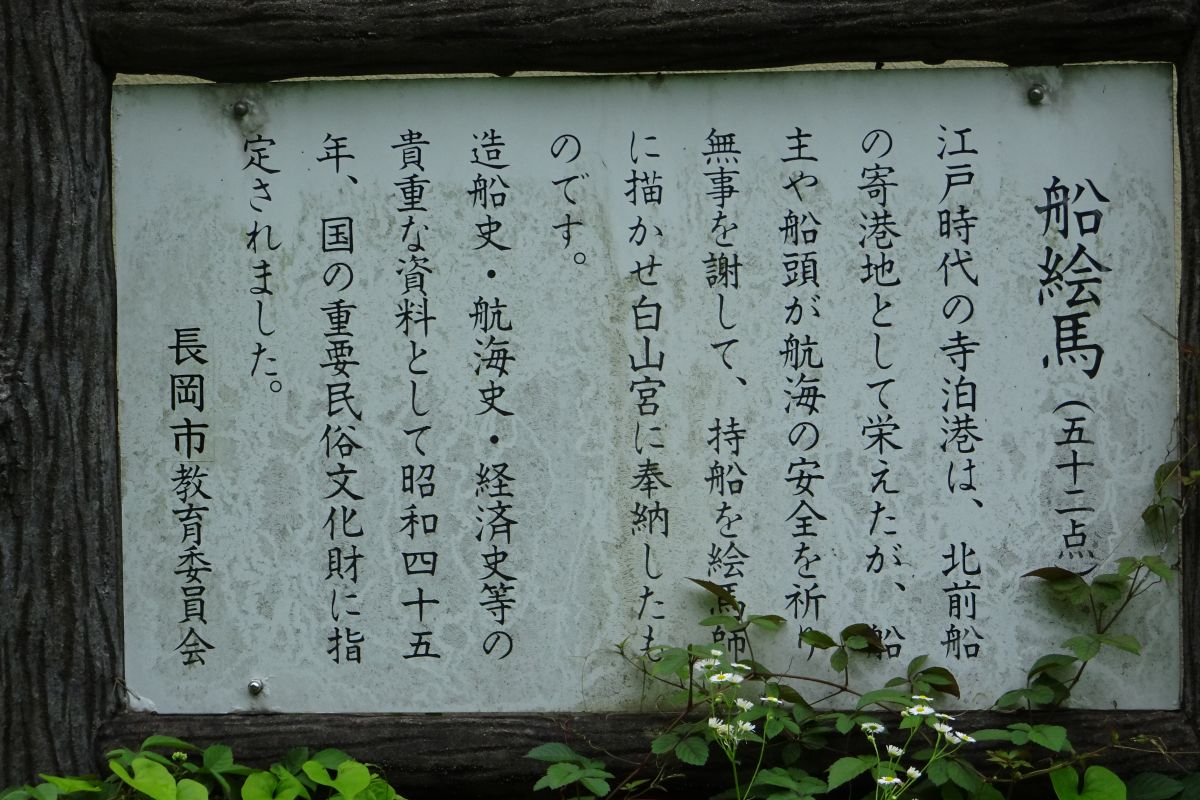 船絵馬（五十二点）
江戸時代の寺泊港は、北前船
の寄港地として栄えたが、船
主や船頭が航海の安全を祈り
無事を謝して、持船を絵馬師
に描かせ白山宮に奉納したも
のです。
造船史・航海史・経済史等の
貴重な資料として昭和四十五
年、国の重要民俗文化財に指
定されました。
長岡市教育委員会